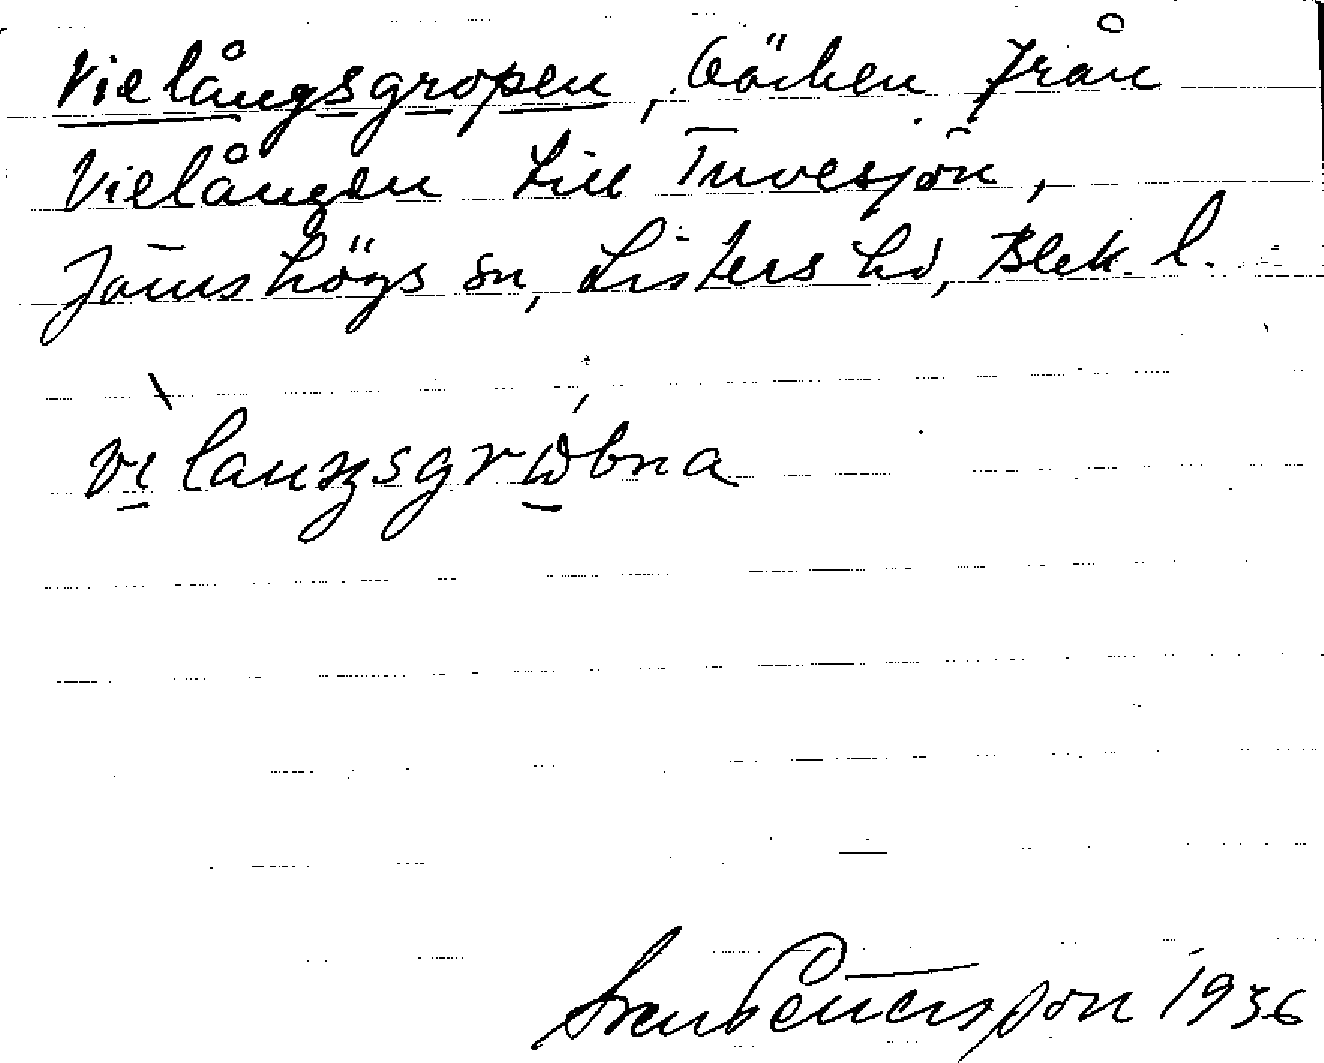 Vielångsgropen, bäcken från
Vielången till Tuvesjön,
Jämshögs sn, Listers hd, Blek. l.
Sven Pettersson 1936